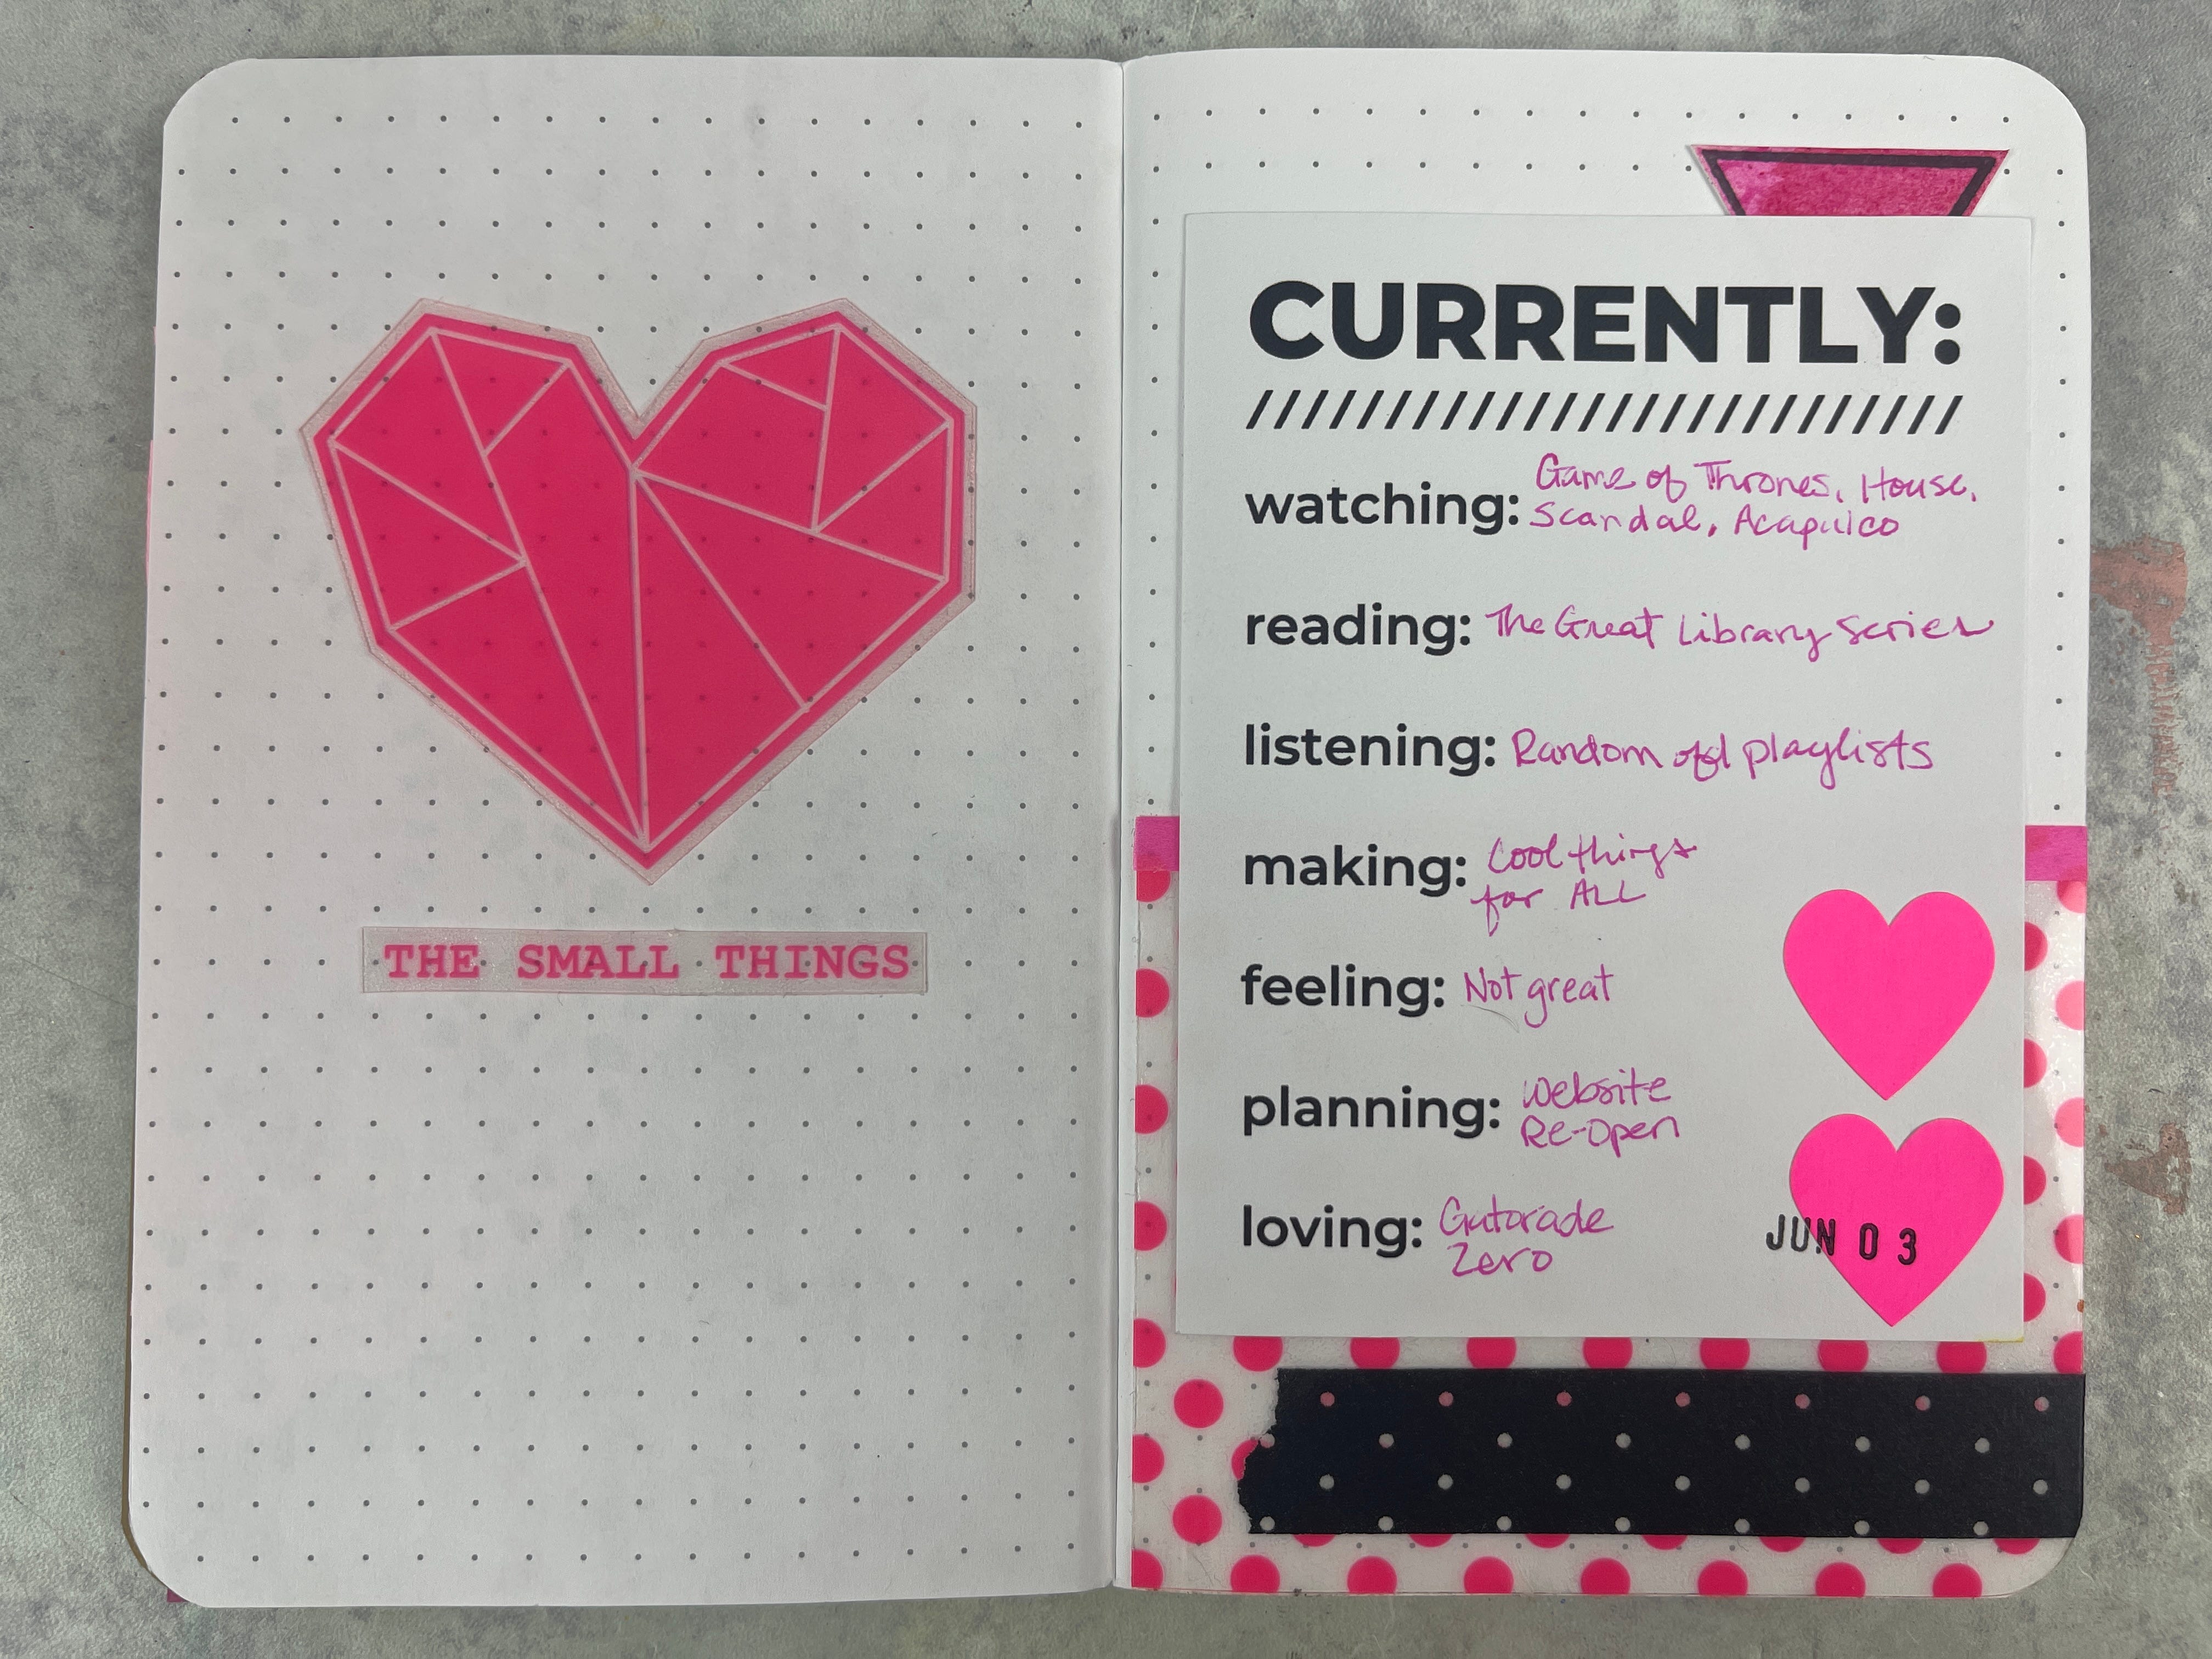 THE SMALL THINGS
CURRENTLY:
////////////////////////////
watching: Game of Thrones, House,
Scandal, Acapulco
reading: The Great Library Series
listening: Random old playlists
making: Cool things
for ALL
feeling: Not great
planning: Website
Re-Open
loving: Gatorade
Zero
JUN 03